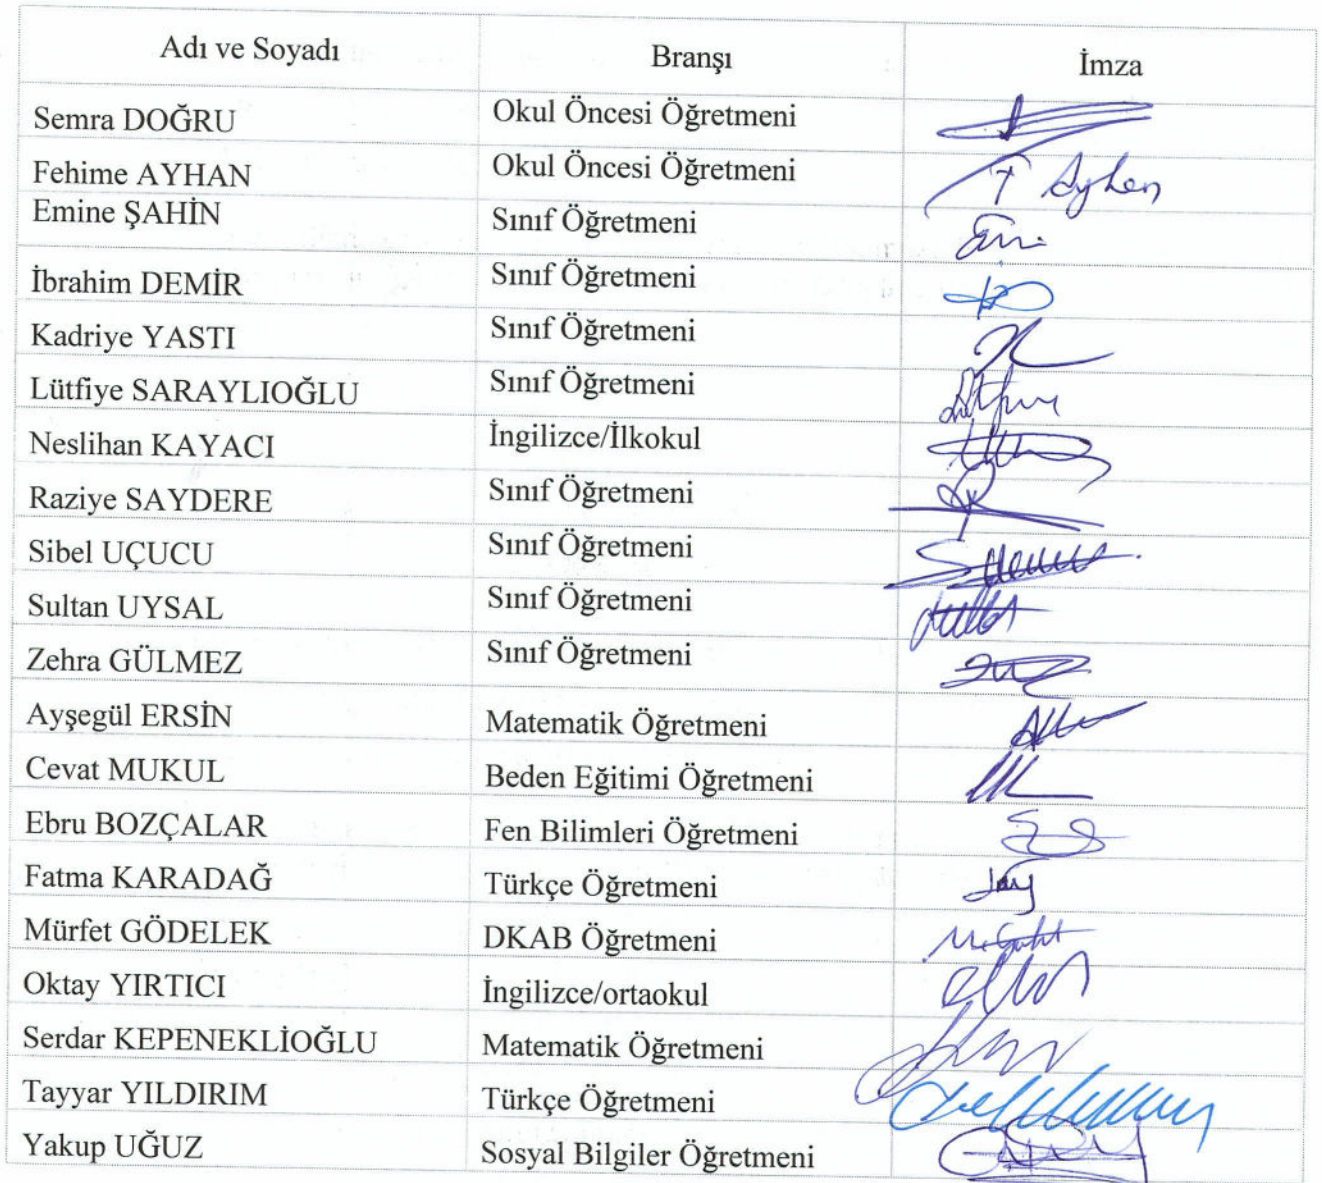 Adı ve Soyadı Branşı İmza
Semra DOĞRU Okul Öncesi Öğretmeni
Fehime AYHAN Okul Öncesi Öğretmeni F Ayhan
Emine ŞAHİN Sınıf Öğretmeni
İbrahim DEMİR Sınıf Öğretmeni
Kadriye YASTI Sınıf Öğretmeni
Lütfiye SARAYLIOĞLU Sınıf Öğretmeni
Neslihan KAYACI İngilizce/İlkokul
Raziye SAYDERE Sınıf Öğretmeni
Sibel UÇUCU Sınıf Öğretmeni
Sultan UYSAL Sınıf Öğretmeni
Zehra GÜLMEZ Sınıf Öğretmeni
Ayşegül ERSİN Matematik Öğretmeni
Cevat MUKUL Beden Eğitimi Öğretmeni
Ebru BOZÇALAR Fen Bilimleri Öğretmeni
Fatma KARADAĞ Türkçe Öğretmeni
Mürfet GÖDELEK DKAB Öğretmeni
Oktay YIRTICI İngilizce/ortaokul
Serdar KEPENEKLİOĞLU Matematik Öğretmeni
Tayyar YILDIRIM Türkçe Öğretmeni
Yakup UĞUZ Sosyal Bilgiler Öğretmeni